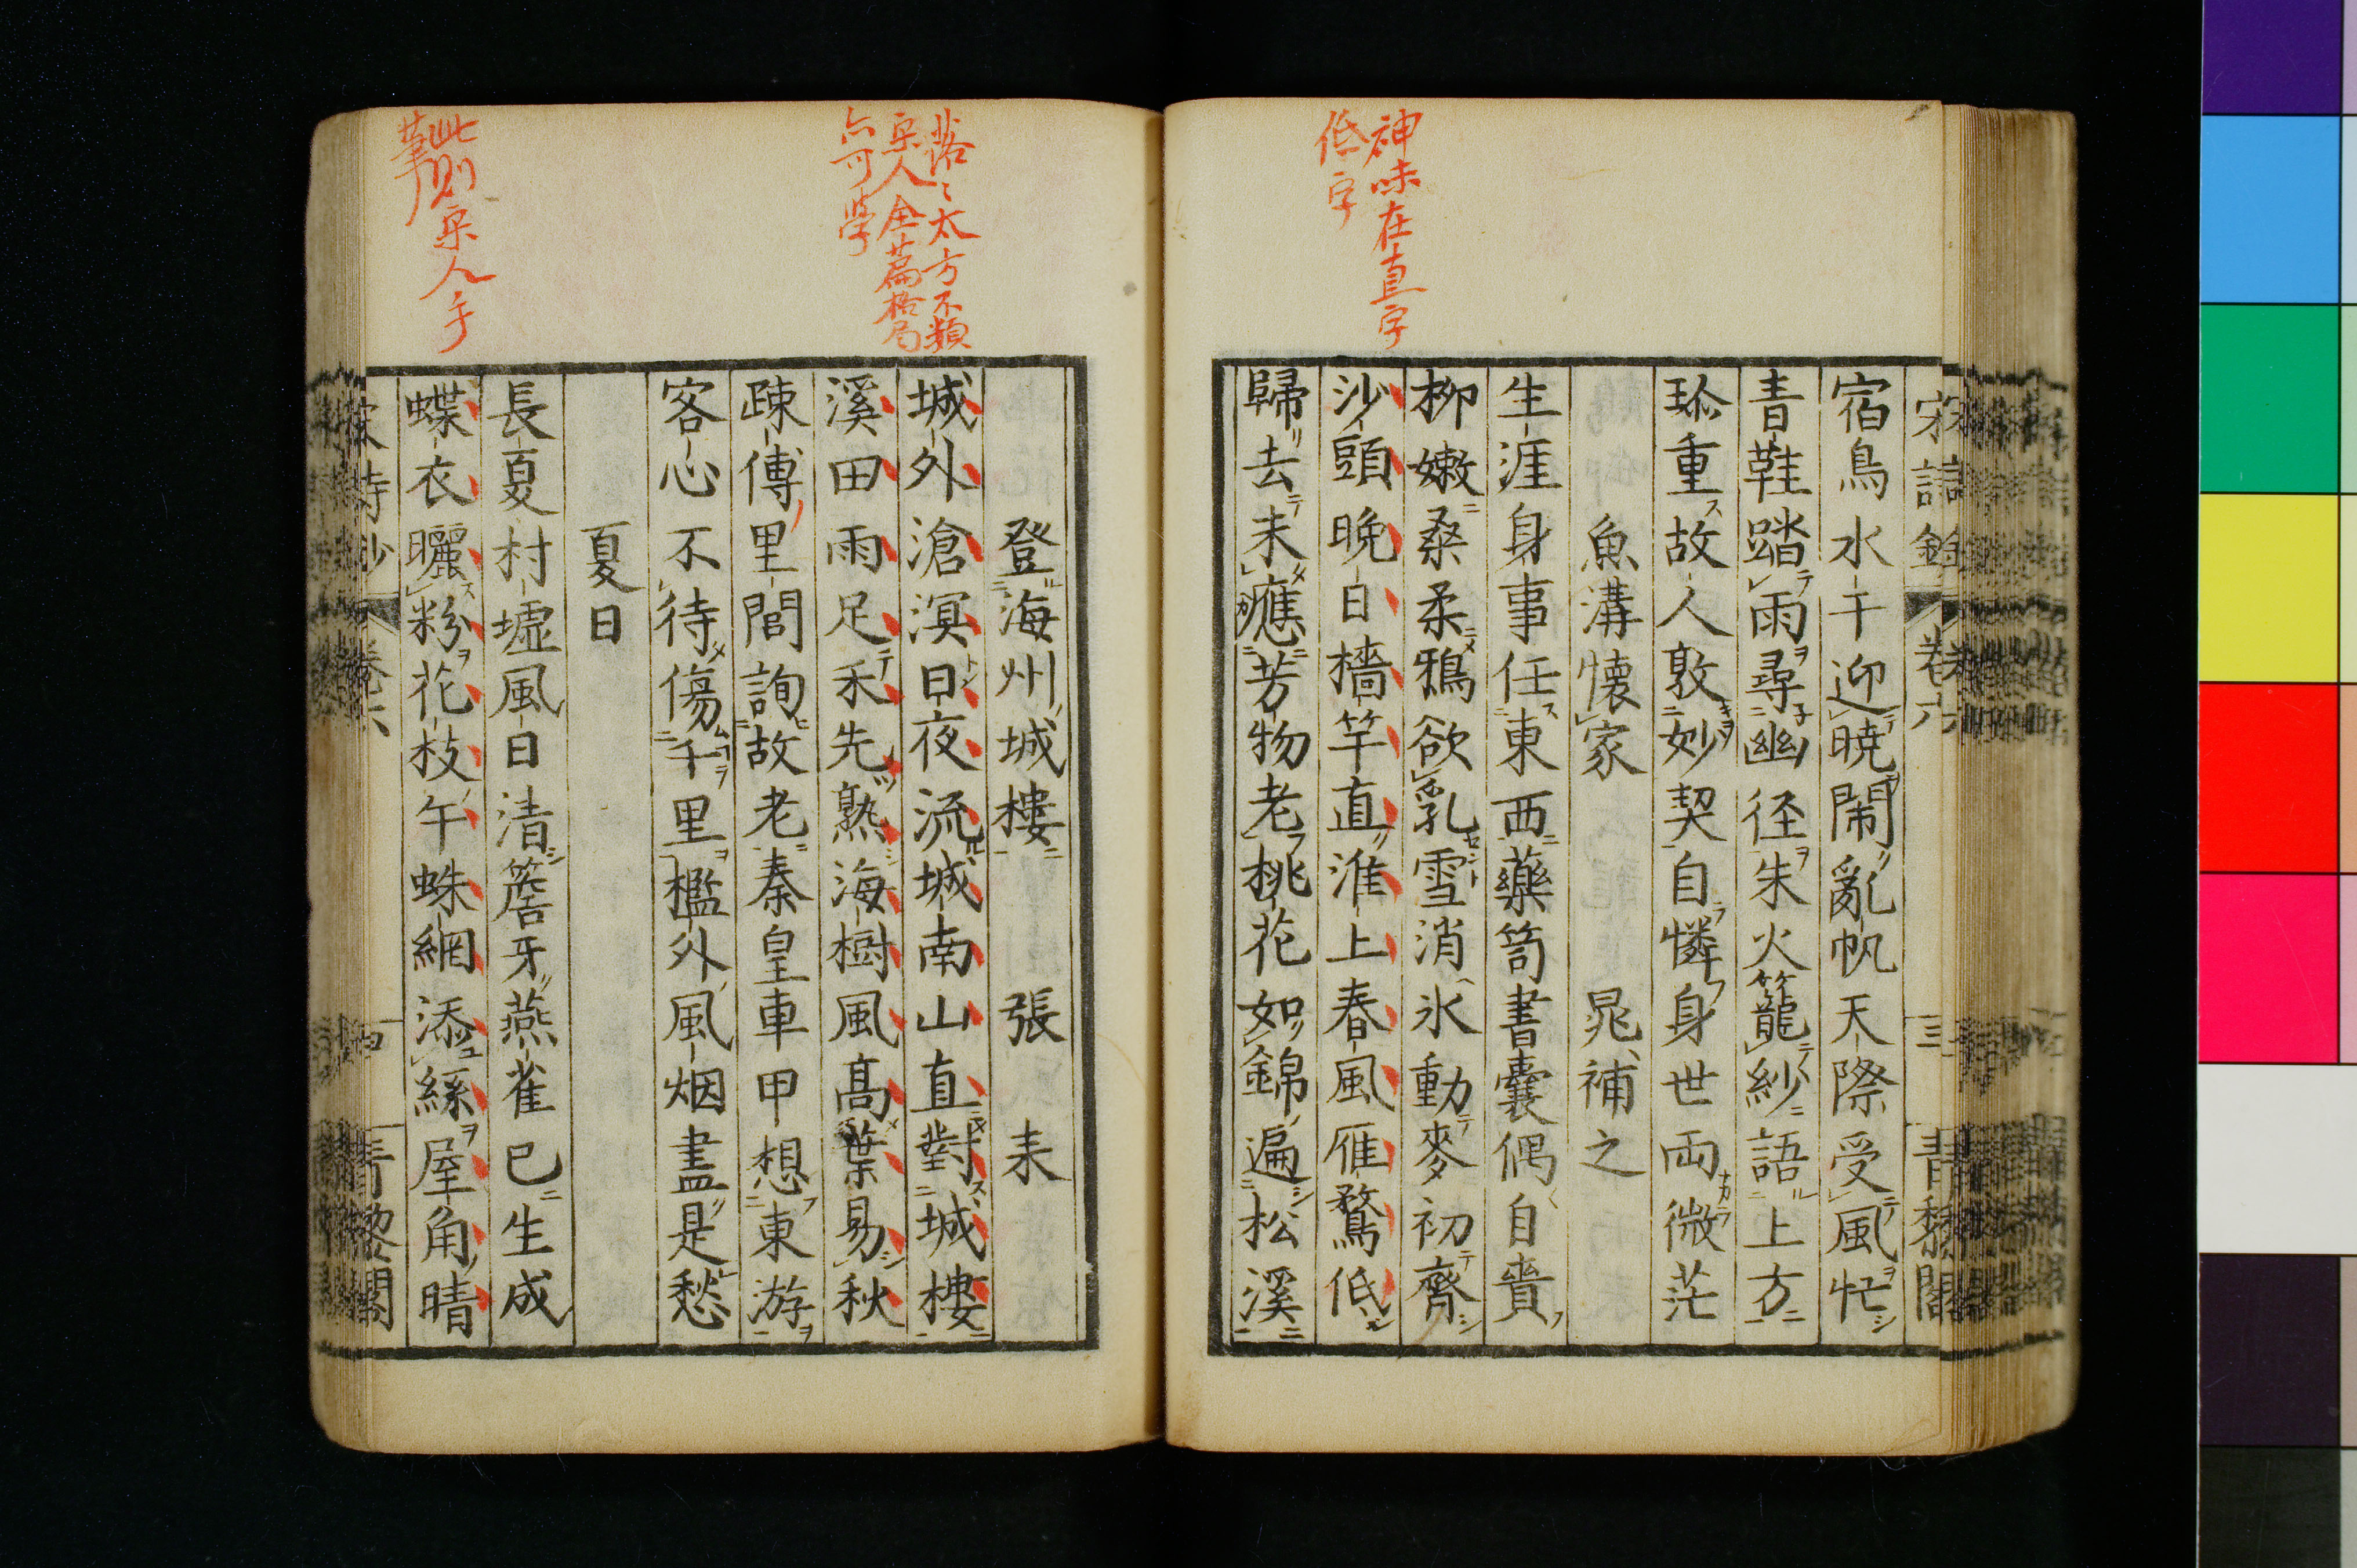 神味在直字
低字
宋詩鈔 卷六 三 青藜閣
宿鳥水干迎曉鬧亂帆天際受風忙
青鞋踏雨尋幽径朱火籠紗語上方
珎重故人敦妙契自憐身世両微茫
魚溝懐家 晁補之
生涯身事任東西藥笥書囊偶自賷
柳嫩桑柔鴉欲乳雪消氷動麥初齊
沙頭晩日檣竿直淮上春風雁鶩低
歸去未應芳物老桃花如錦遍松溪
落〻太方不類
宋人全篇格局
亦可学
此則宋人手
筆
登海州城樓 張耒
城外滄溟日夜流城南山直對城樓
溪田雨足禾先熟海樹風髙葉易秋
疎傳里閭詢故老秦皇車甲想東游
客心不待傷千里檻外風烟盡是愁
夏日
長夏村墟風日清簷牙燕雀已生成
蝶衣曬粉花枝午蛛網添絲屋角晴
宋詩鈔 卷六 四 青藜閣